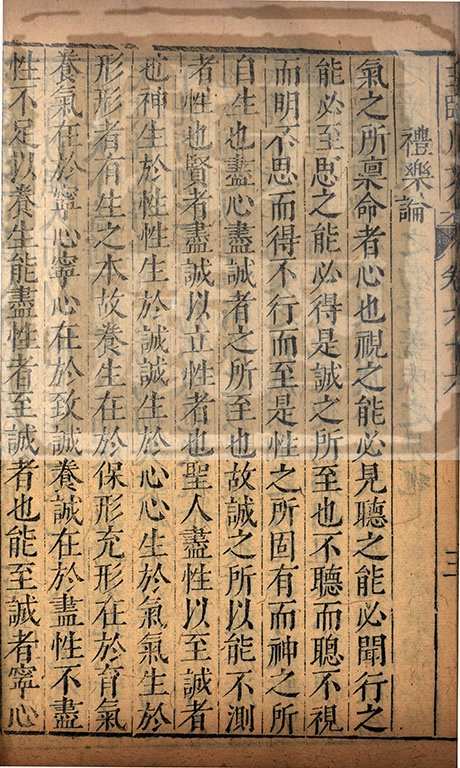 卷六十六
三
禮樂論
氣之所稟命者心也視之能必見聽之能必聞行之
能必至思之能必得是誠之所至也不聽而聰不視
而明不思而得不行而至是性之所固有而神之所
自生也盡心盡誠者之所至也故誠之所以能不測
者性也賢者盡誠以立性者也聖人盡性以至誠者
也神生於性性生於誠誠生於心心生於氣氣生於
形形者有生之本故養生在於保形充形在於育氣
養氣在於寧心寧心在於致誠養誠在於盡性不盡
性不足以養生能盡性者至誠者也能至誠者寧心